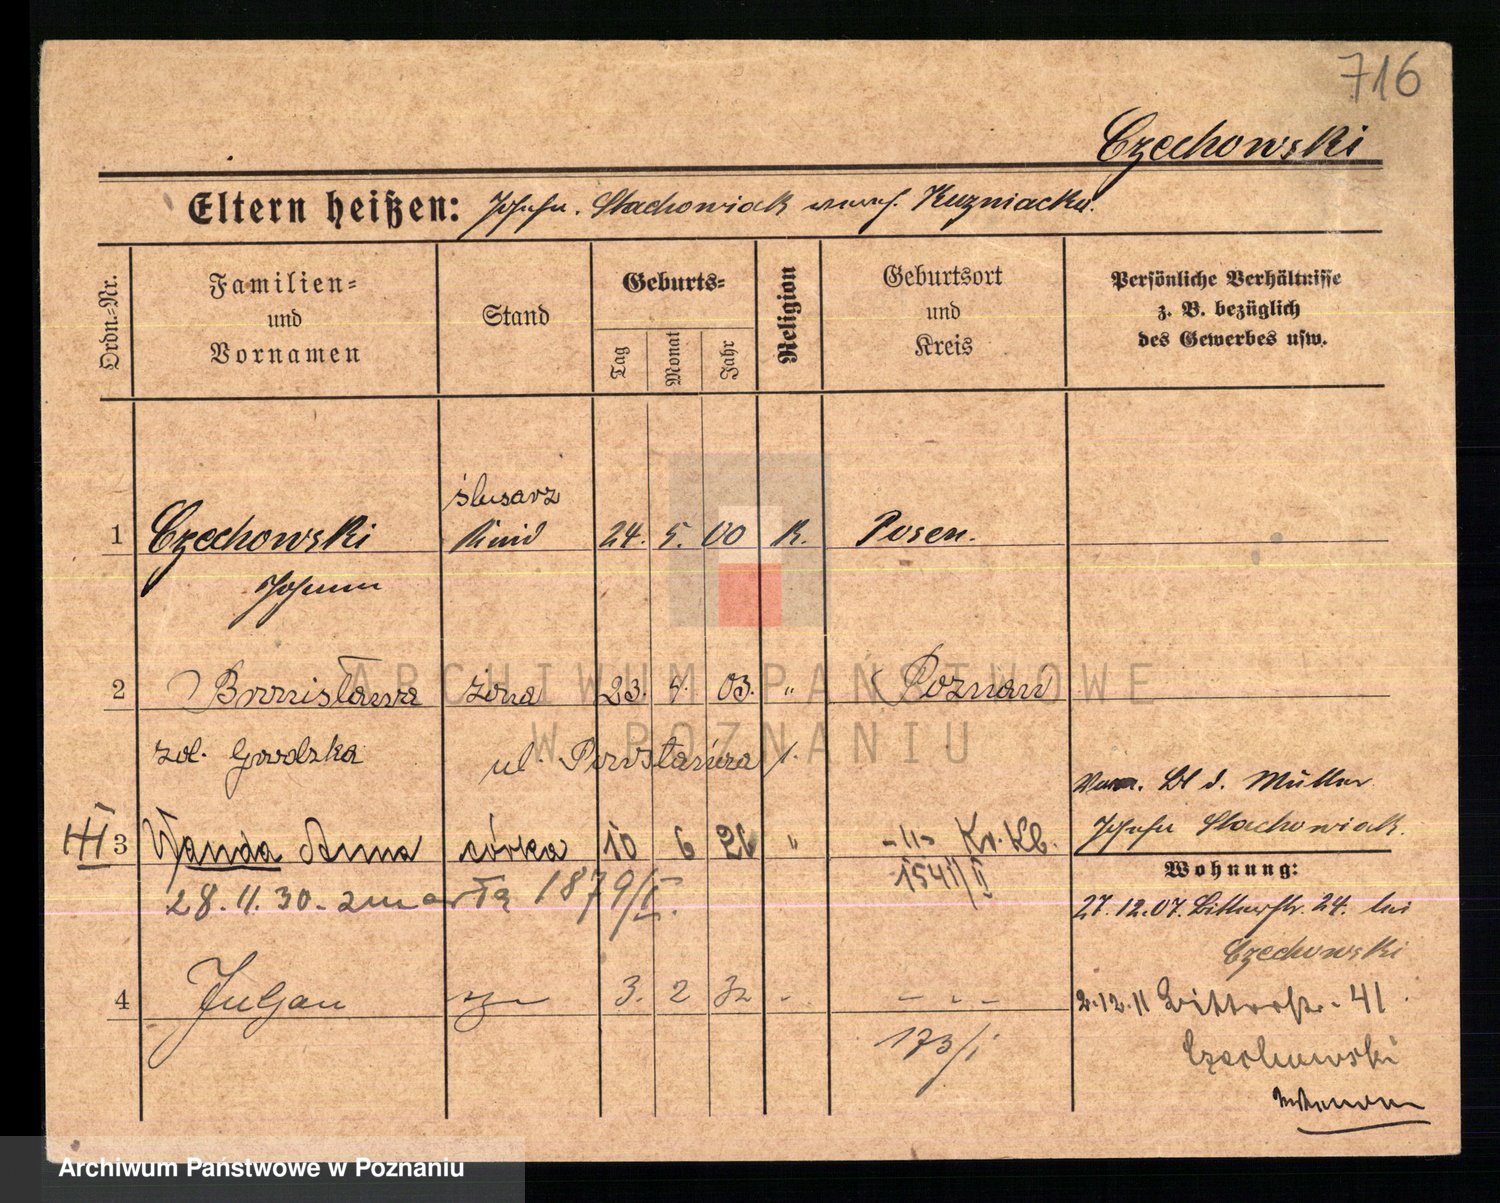 716
Czechowski
Eltern heißen: Stachowiak Kuzniacka.
Ordn.-Nr.
Familien-
und
Vornamen
Stand
Geburts-
Tag
Monat
Jahr
Religion
Geburtsort
und
Kreis
Persönliche Verhältnisse
z. B. bezüglich
des Gewerbes usw.
ślusarz
1 Czechowski Kind 24. 5. 00 K. Posen.
Johann
2 Bronisława żona 23. 03. " Poznań
ARCHIWUM PAŃSTWOWE
W POZNANIU
zd. Grodzka ul. Powstańcza 1.
d. Müller
Stachowiak.
III 3 Wanda Anna córka 10 6 26 " -"- Kr. Kb.
1541/II
Wohnung:
28. 11. 30. zmarła 1879/I.
27. 12. 07. Bitterstr. 24. bei
Czechowski
4 Juljan syn 3. 2 32 - - . -
2.12.11 Bitterstr. 41
173/I
Czechowski
Archiwum Państwowe w Poznaniu